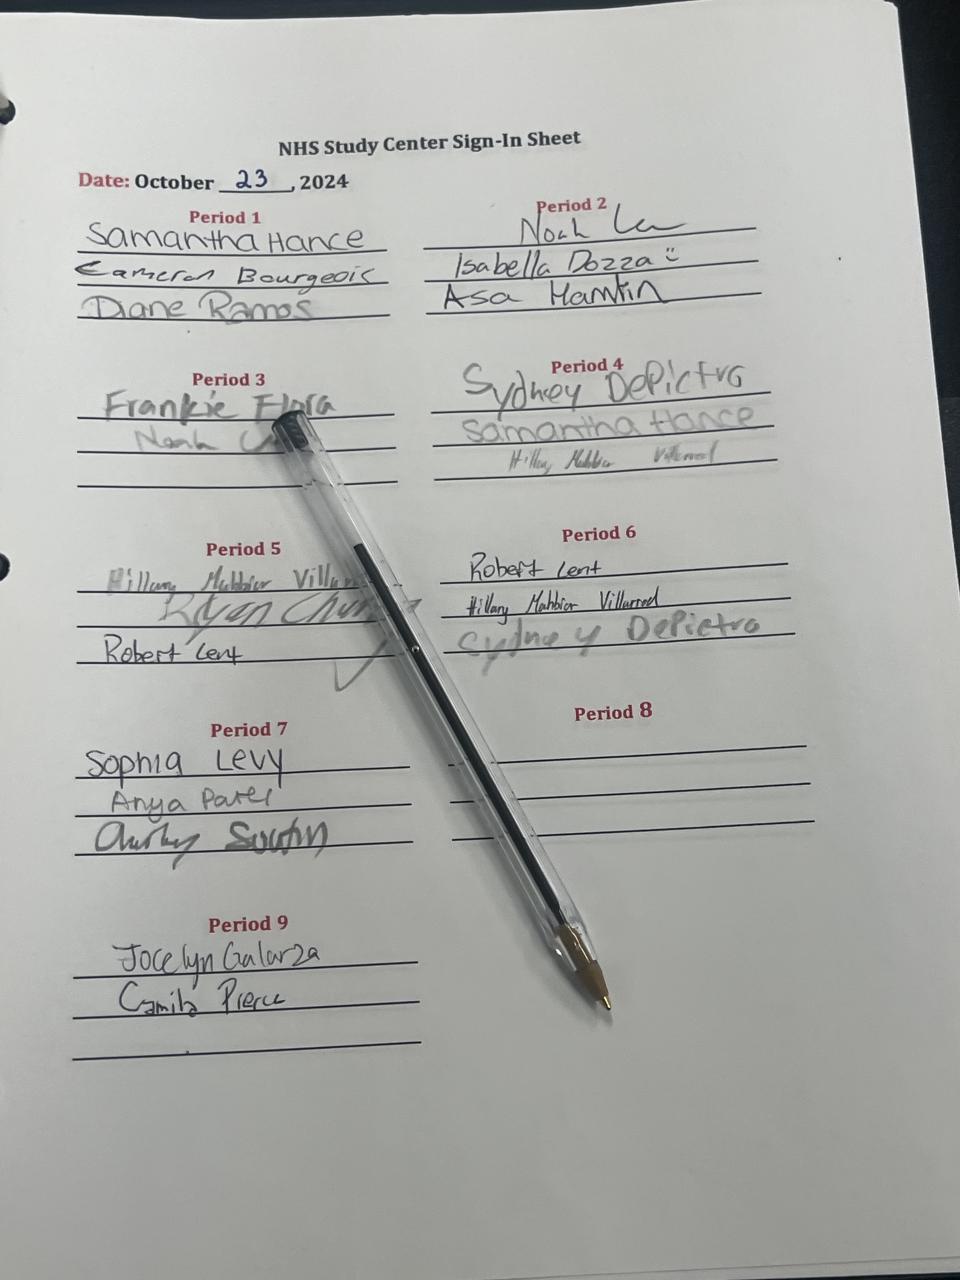 NHS Study Center Sign-In Sheet
Date: October 23, 2024
Period 1
Samantha Hance
Cameron Bourgeois
Diane Ramos
Period 2
Noah
Isabella Dozza :)
Asa
Period 3
Frankie Flora
Noah
Period 4
Sydney DePietro
Samantha Hance
Hillary Mahbior Villarreal
Period 5
Hillary Mahbior
Ryan
Robert Lent
Period 6
Robert Lent
Hillary Mahbior Villarreal
Sydney DePietro
Period 7
Sophia Levy
Anya Patel
Period 8
Period 9
Jocelyn Galarza
Camila Pierce